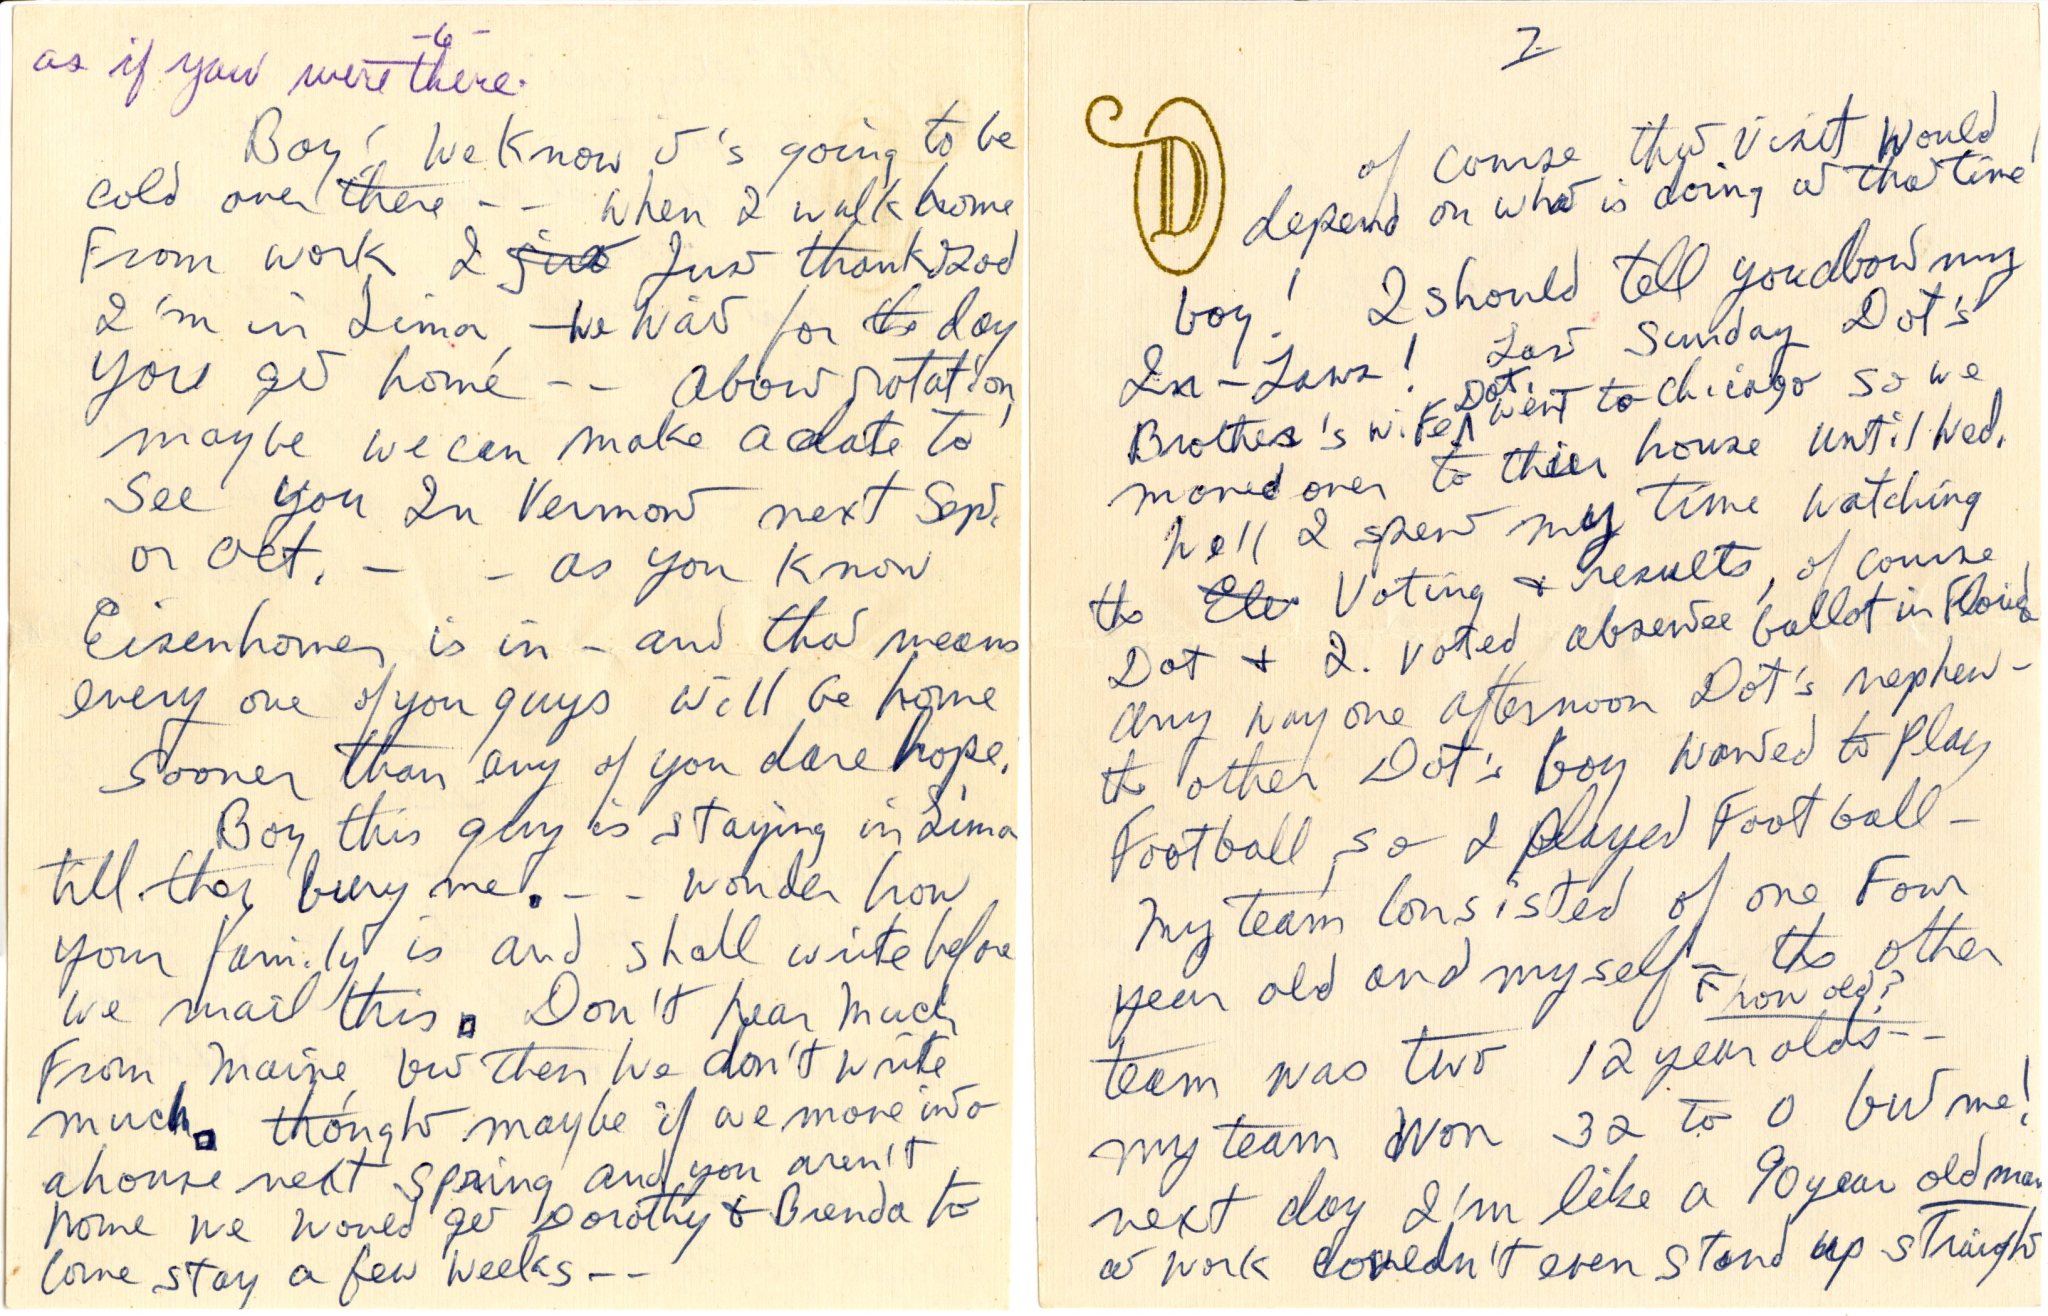 -6-
as if you were there.
Boy! We know it's going to be
cold over there -- when I walk home
From work I just Just thank God
I'm in Lima, we wait for the day
you get home -- about rotation,
maybe we can make a date to
See you In Vermont next Sept.
or Oct. - - as you know
Eisenhower is in - and that means
every one of you guys will be home
sooner than any of you dare hope.
Boy this guy is staying in Lima
till they bury me. -- wonder how
your family is and shall write before
we mail this. Don't hear much
From Maine, but then we don't write
much. thought maybe if we move into
a house next spring and you aren't
home we would get Dorothy & Brenda to
come stay a few weeks --
7
D
of course that visit would
depend on what is doing at that time
boy! I should tell you about my
In-Laws! Last Sunday Dot's
Brother's wife, Dot, went to Chicago so we
moved over to their house until Wed.
Well I spent my time watching
the Ele Voting & results, of course
Dot & I. Voted absentee ballot in Florida
any way one afternoon Dot's nephew -
the other Dot's boy wanted to play
Football, so I played Football -
My team Consisted of one Four
year old and myself - the other
how old?
team was two 12 year olds --
my team won 32 to 0 but me!
next day I'm like a 90 year old man
at work couldn't even stand up straight